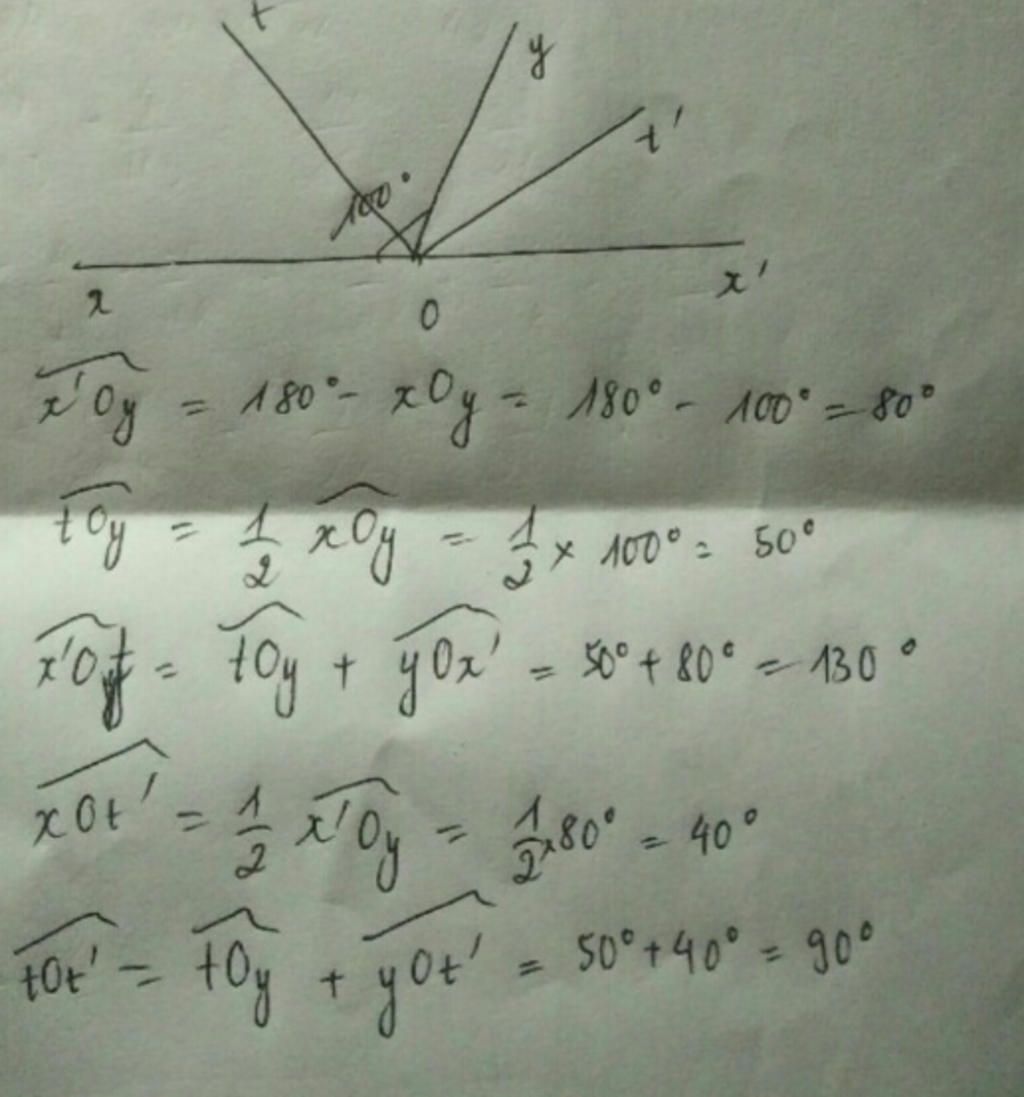 t
y
t'
100°
x
O
x'
x'Oy = 180° - xOy = 180° - 100° = 80°
tOy = 1/2 xOy = 1/2 x 100° = 50°
x'Ot = tOy + yOx' = 50° + 80° = 130°
xOt' = 1/2 x'Oy = 1/2 x 80° = 40°
tOt' = tOy + yOt' = 50° + 40° = 90°